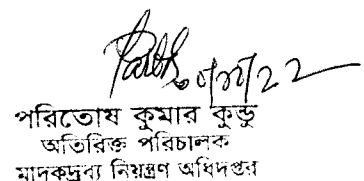 পরিতোষ কুমার কুন্ডু
অতিরিক্ত পরিচালক
মাদকদ্রব্য নিয়ন্ত্রণ অধিদপ্তর